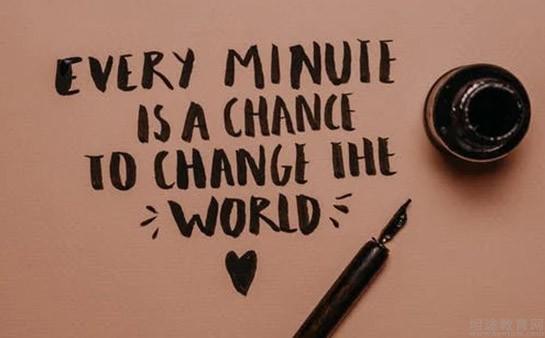 EVERY MINUTE
IS A CHANCE
TO CHANGE THE
WORLD
坦途教育网